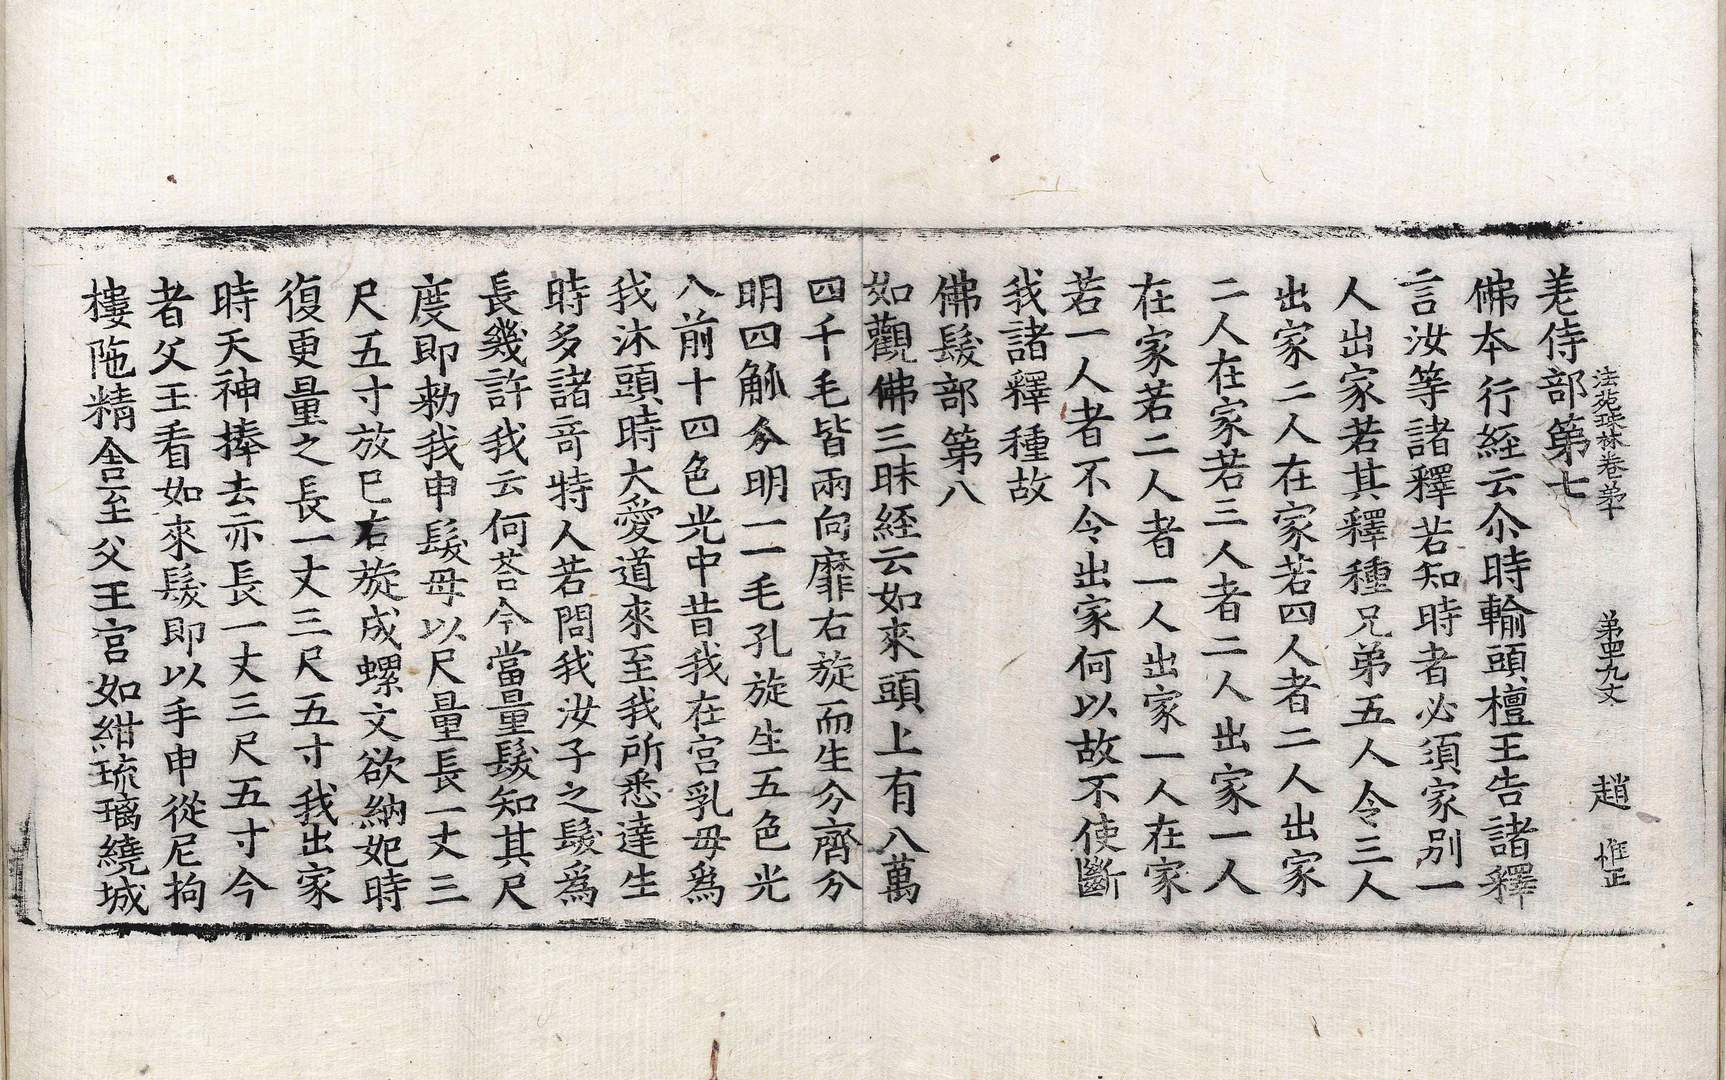 法苑珠林卷第十 第四九丈 趙 惟正
羌侍部第七
佛本行經云尒時輸頭檀王告諸釋
言汝等諸釋若知時者必須家別一
人出家若其釋種兄弟五人令三人
出家二人在家若四人者二人出家
二人在家若三人者二人出家一人
在家若二人者一人出家一人在家
若一人者不令出家何以故不使斷
我諸釋種故
佛髮部第八
如觀佛三昧經云如來頭上有八萬
四千毛皆兩向靡右旋而生分齊分
明四觚分明一一毛孔旋生五色光
八前十四色光中昔我在宮乳母爲
我沐頭時大愛道來至我所悉達生
時多諸竒特人若問我汝子之髮爲
長幾許我云何荅今當量髮知其尺
度即勑我申髮母以尺量長一丈三
尺五寸放已右旋成螺文欲納妃時
復更量之長一丈三尺五寸我出家
時天神捧去亦長一丈三尺五寸今
者父王看如來髮即以手申從尼拘
樓陁精舍至父王宮如紺琉璃繞城